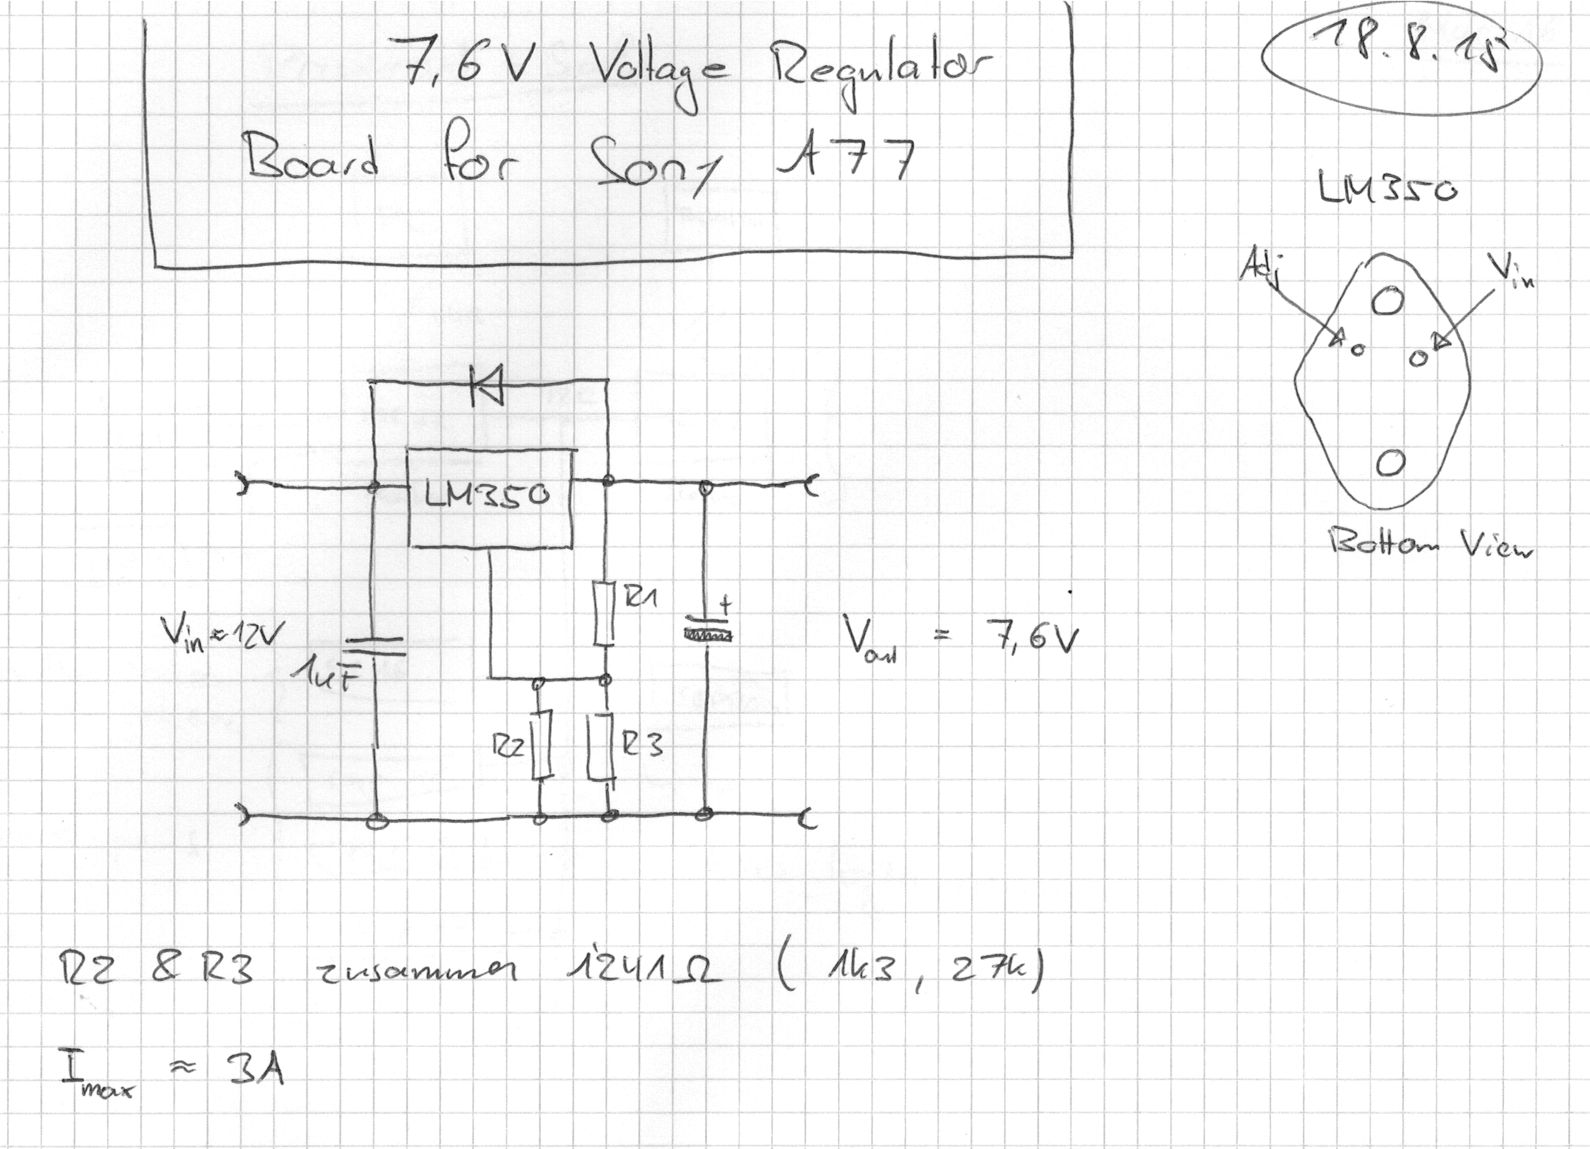 7,6V Voltage Regulator
Board for Sony A77
18.8.15
LM350
Adj
Vin
Bottom View
LM350
R1
+
Vin ≈ 12V
1uF
Vout = 7,6V
R2
R3
R2 & R3 zusammen 1241Ω ( 1k3, 27k)
Imax ≈ 3A